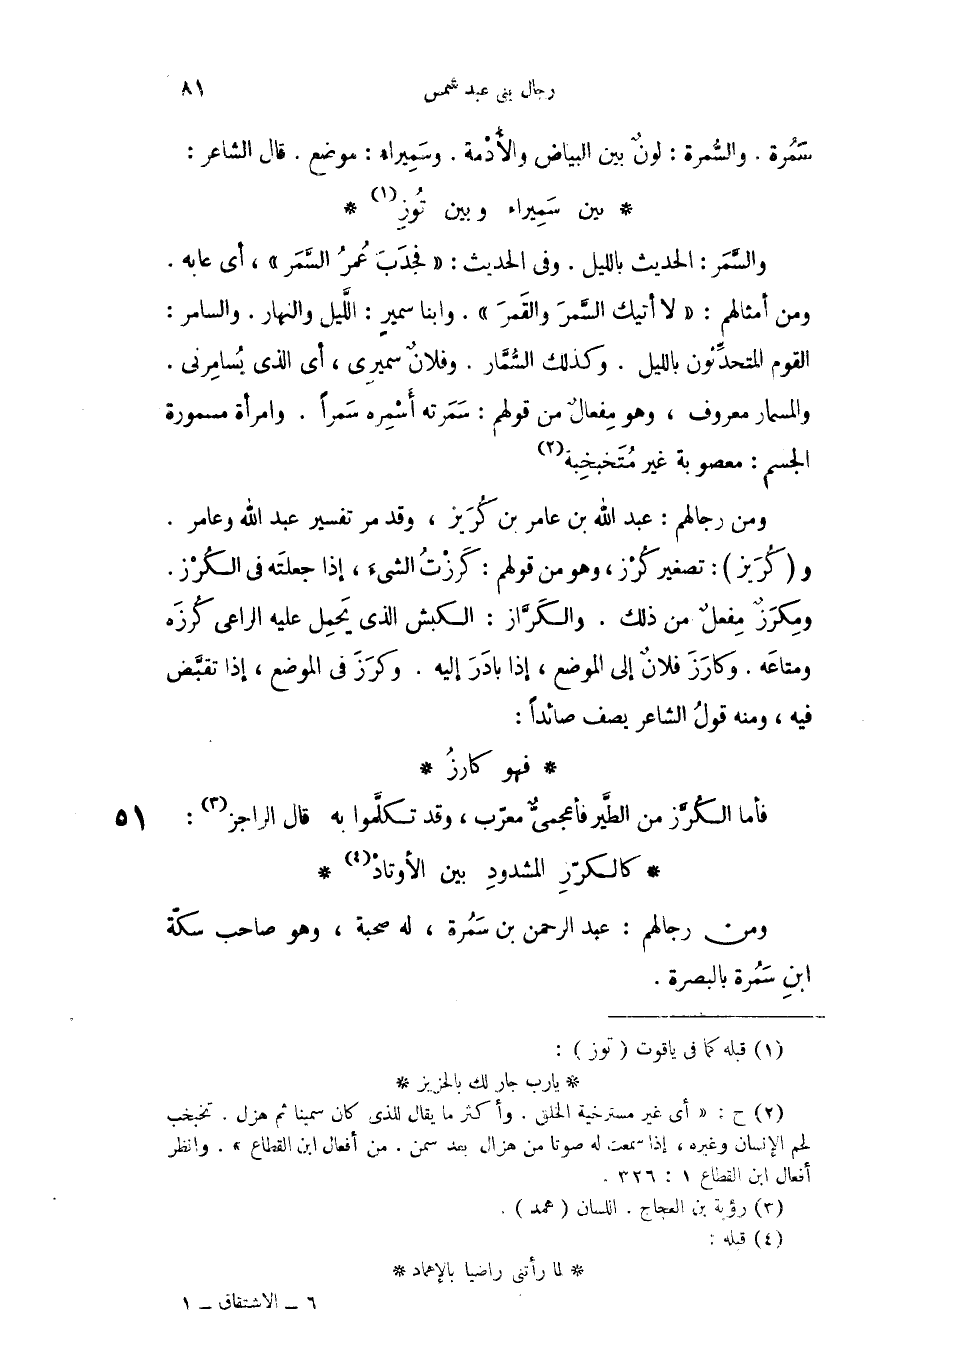 رجال بنى عبد شمس ٨١
سَمُرة . والسُّمرة : لونٌ بين البياض والأُدْمة . وسَمِيراء : موضع . قال الشاعر :
* بين سَمِيراء وبين تُوزِ(١) *
والسَّمَر : الحديث بالليل . وفى الحديث : « فجدَبَ عُمرُ السَّمَر » ، أى عابه .
ومن أمثالهم : « لا أتيك السَّمرَ والقَمرَ » . وابنا سميرٍ : اللَّيل والنهار . والسامر :
القوم المتحدِّثون بالليل . وكذلك السُّمَّار . وفلانٌ سميرى ، أى الذى يُسامِرنى .
والمسمار معروف ، وهو مِفعالٌ من قولهم : سَمَرته أَسْمِره سَمراً . وامرأة مسمورة
الجسم : معصوبة غير مُتَخبخِبة(٢)
ومن رجالهم : عبد الله بن عامر بن كُرَيز ، وقد مر تفسير عبد الله وعامر .
و ( كُرَيز ) : تصغير كُرْز ، وهو من قولهم : كَرَزْتُ الشىء ، إذا جعلتَه فى الكُرْز .
ومِكرَزٌ مِفعلٌ من ذلك . والكَرَّاز : الكبش الذى يَحمِل عليه الراعى كُرزَه
ومتاعَه . وكارَزَ فلانٌ إلى الموضع ، إذا بادَرَ إليه . وكرَزَ فى الموضع ، إذا تقبَّض
فيه ، ومنه قولُ الشاعر يصف صائداً :
* فهو كارزُ *
فأما الكُرَّز من الطَّير فأعجمىٌّ معرّب ، وقد تكلَّموا به قال الراجز(٣) : ٥١
* كالكرّزِ المشدودِ بين الأوتادْ(٤) *
ومن رجالهم : عبد الرحمن بن سَمُرة ، له صحبة ، وهو صاحب سكّة
ابنِ سَمُرة بالبصرة .
(١) قبله كما فى ياقوت ( توز ) :
* يارب جار لك بالحزيز *
(٢) ح : « أى غير مسترخية الخلق . وأكثر ما يقال للذى كان سمينا ثم هزل . تخبخب
لحم الإنسان وغيره ، إذا سمعت له صوتا من هزال بعد سمن . من أفعال ابن القطاع » . وانظر
أفعال ابن القطاع ١ : ٣٢٦ .
(٣) رؤبة بن العجاج . اللسان ( همد ) .
(٤) قبله :
* لما رأتنى راضيا بالإهماد *
٦ ــ الاشتقاق ــ ١